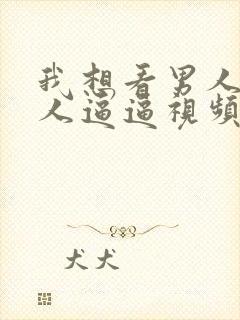 我想看男人
人逼逼視頻
犬犬